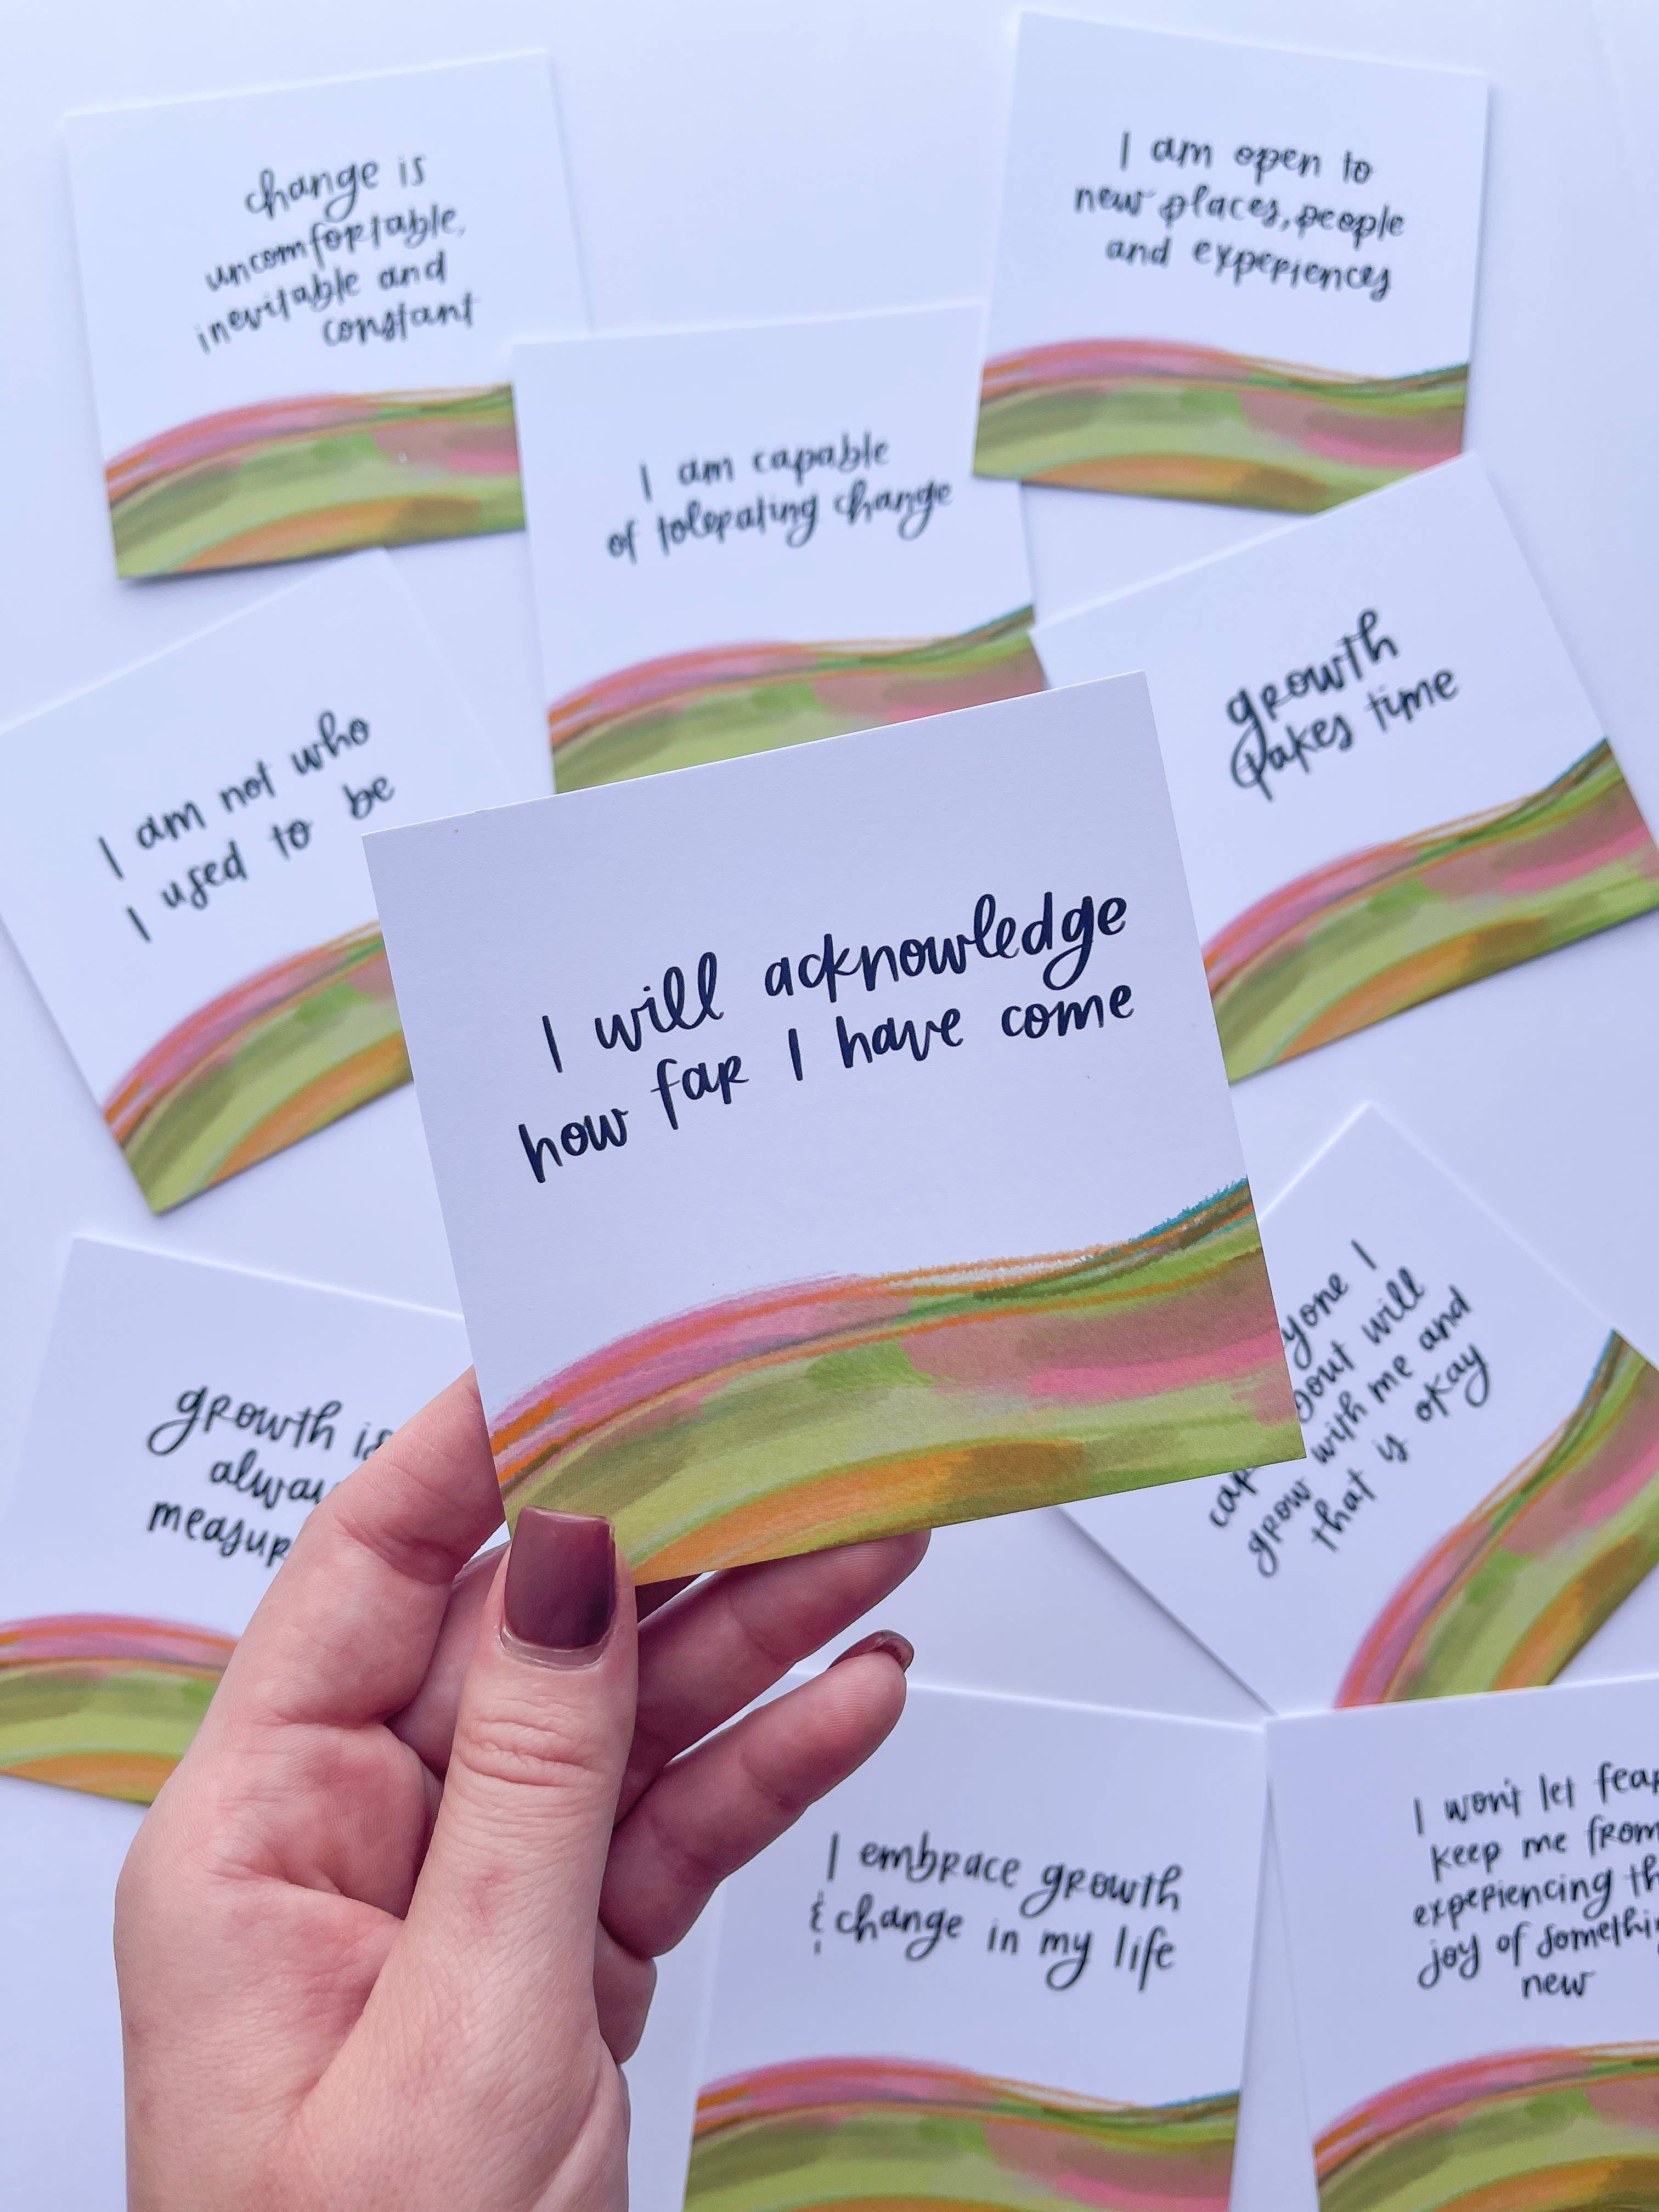 change is
uncomfortable,
inevitable and
constant
I am open to
new places, people
and experiences
I am capable
of tolerating change
growth
takes time
I am not who
I used to be
I will acknowledge
how far I have come
growth is
yone I
bout will
grow with me and
that is okay
I embrace growth
& change in my life
I won't let fear
keep me from
experiencing th
joy of somethin
new